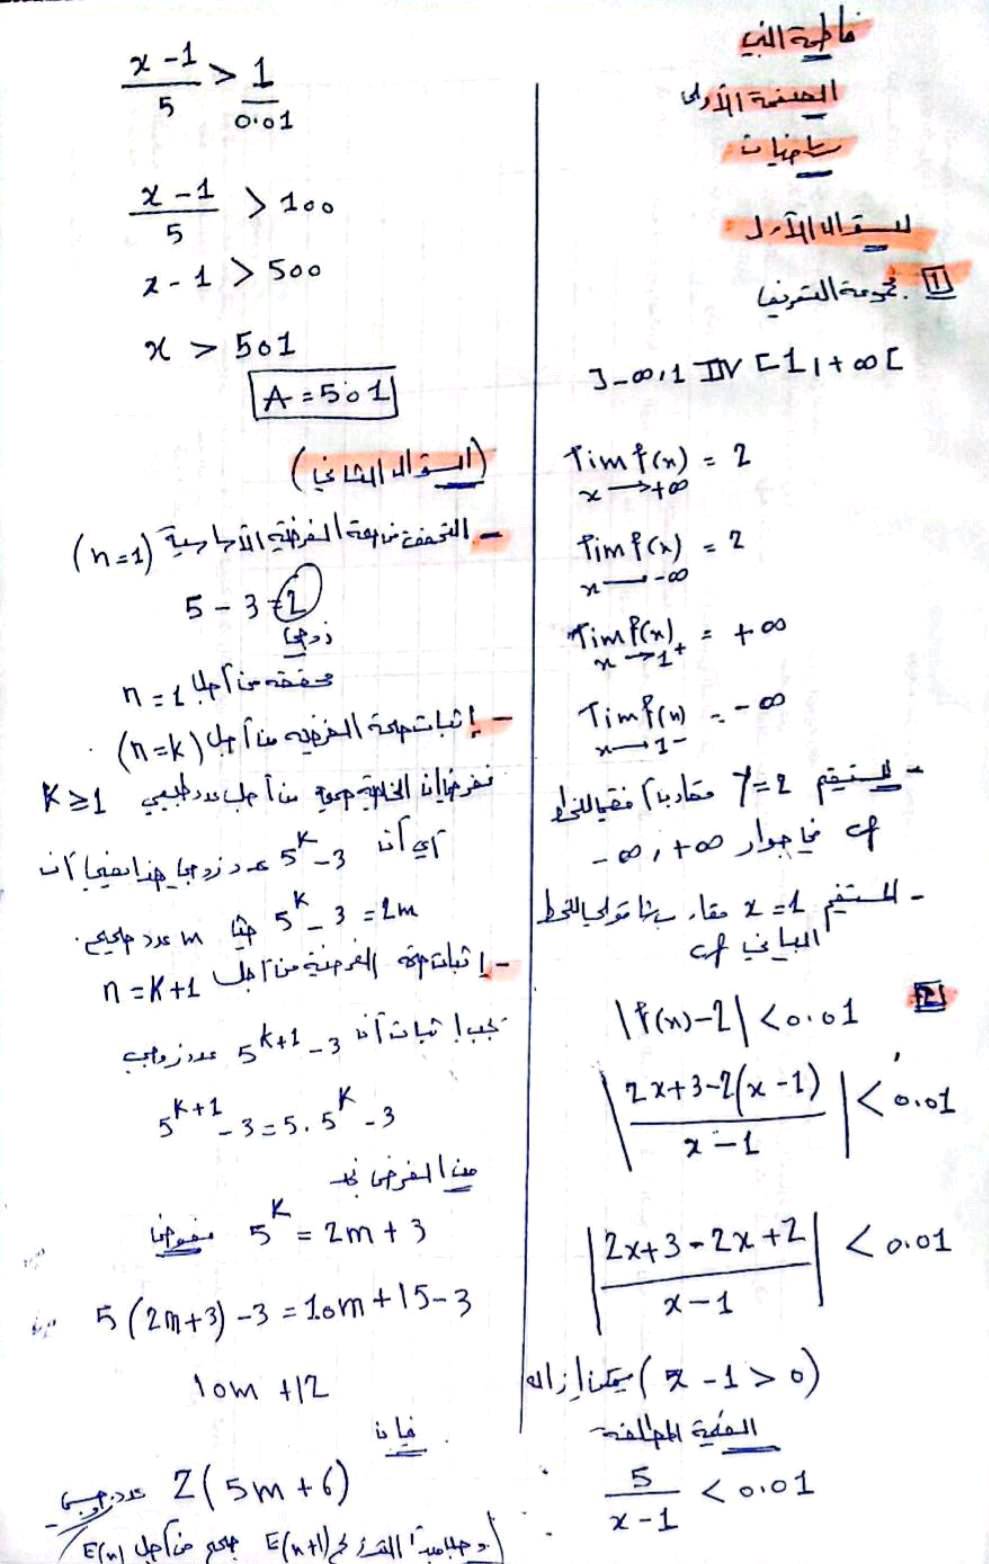 فاطمة النبي
الصفحة الأولى
رياضيات
السؤال الأول
1. مجموعة التعريف
]-∞,1[ U ]1,+∞[
lim f(x) = 2
x→+∞
lim f(x) = 2
x→-∞
lim f(x) = +∞
x→1+
lim f(x) = -∞
x→1-
- المستقيم y=2 مقارباً أفقيا للخط
cf في جوار +∞, -∞
- المستقيم x=1 مقارباً شاقولياً للخط
البياني cf
2
|f(x)-2| < 0.01
|(2x+3-2(x-1))/(x-1)| < 0.01
|(2x+3-2x+2)/(x-1)| < 0.01
(x-1>0) يمكن إزالة
القيمة المطلقة
5/(x-1) < 0.01
(x-1)/5 > 1/0.01
(x-1)/5 > 100
x-1 > 500
x > 501
A = 501
(السؤال الثاني)
- التحقق من صحة الفرضية الأساسية (n=1)
5-3=2
زوجي
محققة من أجل n=1
- إثبات صحة الفرضية من أجل (n=k)
نفرض أن الخاصة صحيحة من أجل عدد طبيعي K≥1
أي أن 5^K-3 عدد زوجي هذا يعني أن
5^K-3=2m حيث m عدد صحيح.
- إثبات صحة الفرضية من أجل n=K+1
يجب إثبات أن 5^{k+1}-3 عدد زوجي
5^{K+1}-3=5.5^K-3
من الفرض نجد
5^K=2m+3 نعوض
5(2m+3)-3=10m+15-3
10m+12
فإن
2(5m+6) عدد زوجي
E(n+1) صحيح من أجل E(n)